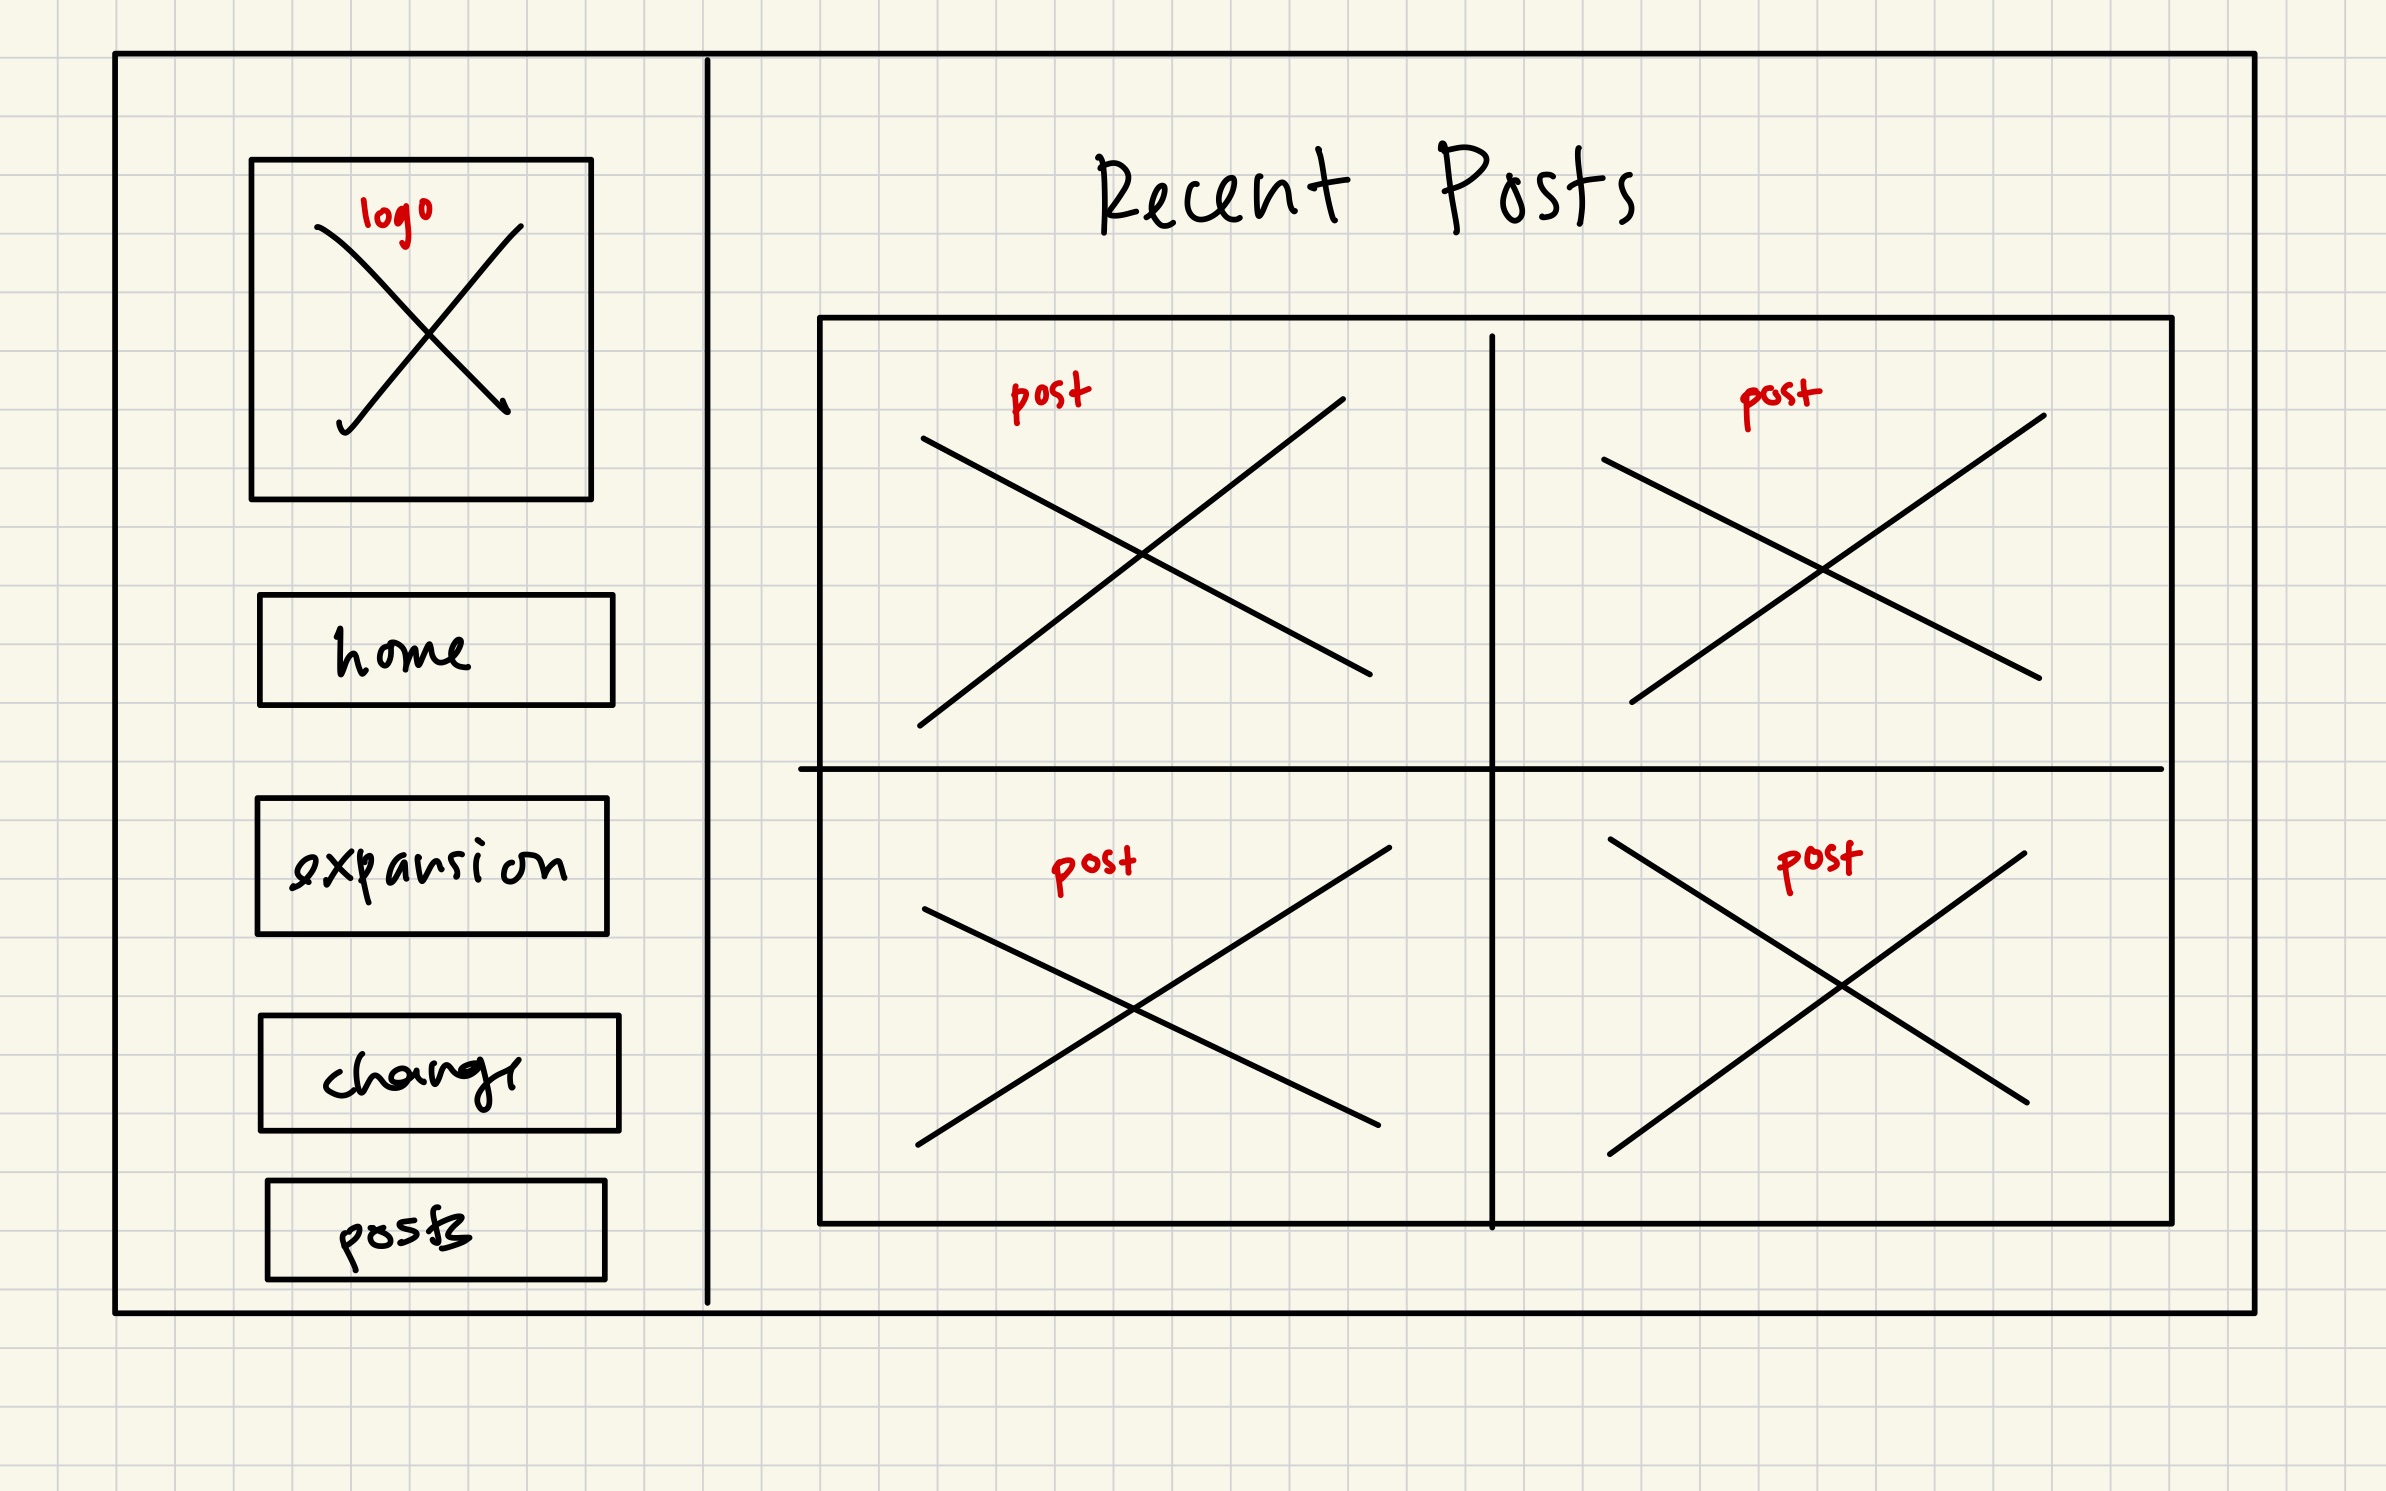 logo
home
expansion
change
posts
Recent Posts
post
post
post
post